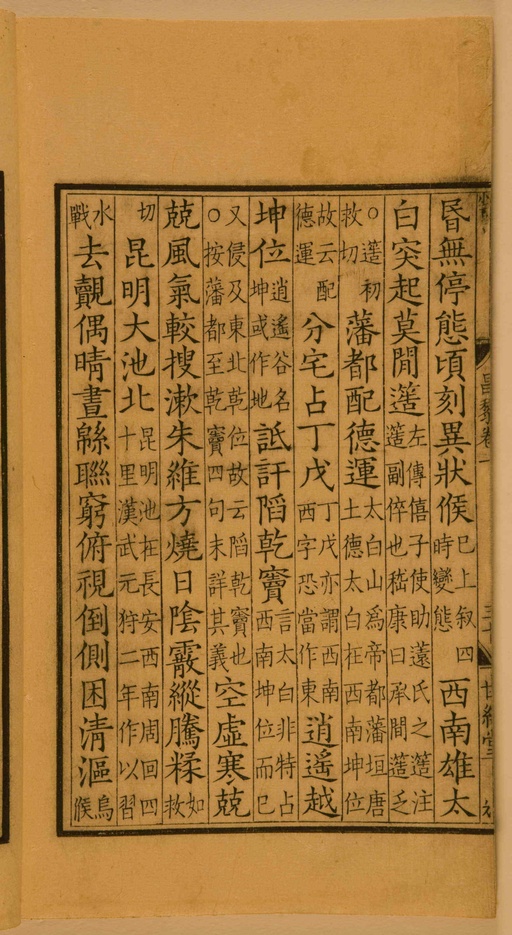 昬無停態頃刻異狀候已上叙四時變態西南雄太
白突起莫閒簉左傳僖子使助薳氏之簉注簉副倅也嵇康曰承間簉乏
○簉初救切藩都配德運太白山爲帝都藩垣唐土德太白在西南坤位
故云配德運分宅占丁戊丁戊亦謂西南西字恐當作東逍遙越
坤位逍遙谷名坤或作地詆訐陷乾竇言太白非特占西南坤位而已
又侵及東北乾位故云陷乾竇也○按藩都至乾竇四句未詳其義空虛寒兢
兢風氣較搜漱朱維方燒日陰霰縱騰糅如救
切昆明大池北昆明池在長安西南周回四十里漢武元狩二年作以習
水戰去覿偶晴晝緜聯窮俯視倒側困清漚烏候